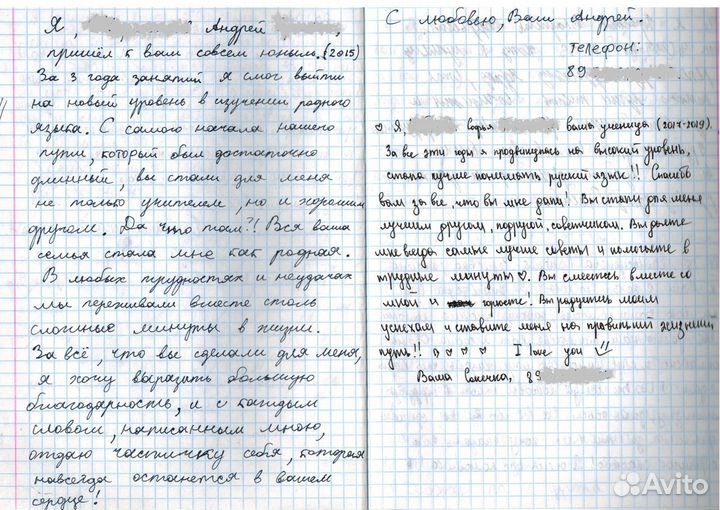 Я, Андрей ,
пришёл к вам совсем юным. (2015)
За 3 года занятий я смог выйти
на новый уровень в изучении родного
языка. С самого начала нашего
пути, который был достаточно
длинный, вы стали для меня
не только учителем, но и хорошим
другом. Да что там?! Вся ваша
семья стала мне как родная.
В любых трудностях и неудачах
мы переживали вместе столь
сложные минуты в жизни.
За всё, что вы сделали для меня,
я хочу выразить большую
благодарность, и с каждым
словом, написанным мною,
отдаю частичку себя, которая
навсегда останется в вашем
сердце!
С любовью, Ваш Андрей.
Телефон:
89
♡ Я, ваша ученица (2017-2019).
За все эти годы я продвинулась на высокий уровень,
стала лучше понимать русский язык!! Спасибо
вам за все, что вы мне дали! Вы стали для меня
лучшим другом, подругой, советником. Вы даёте
мне всегда самые лучшие советы и помогаете в
трудные минуты♡. Вы смеетесь вместе со
мной и горюете! Вы радуетесь моим
успехам и ставите меня на правильный жизненный
путь!! ♡ ♡ ♡ ♡ I love you
Ваша 89
Avito